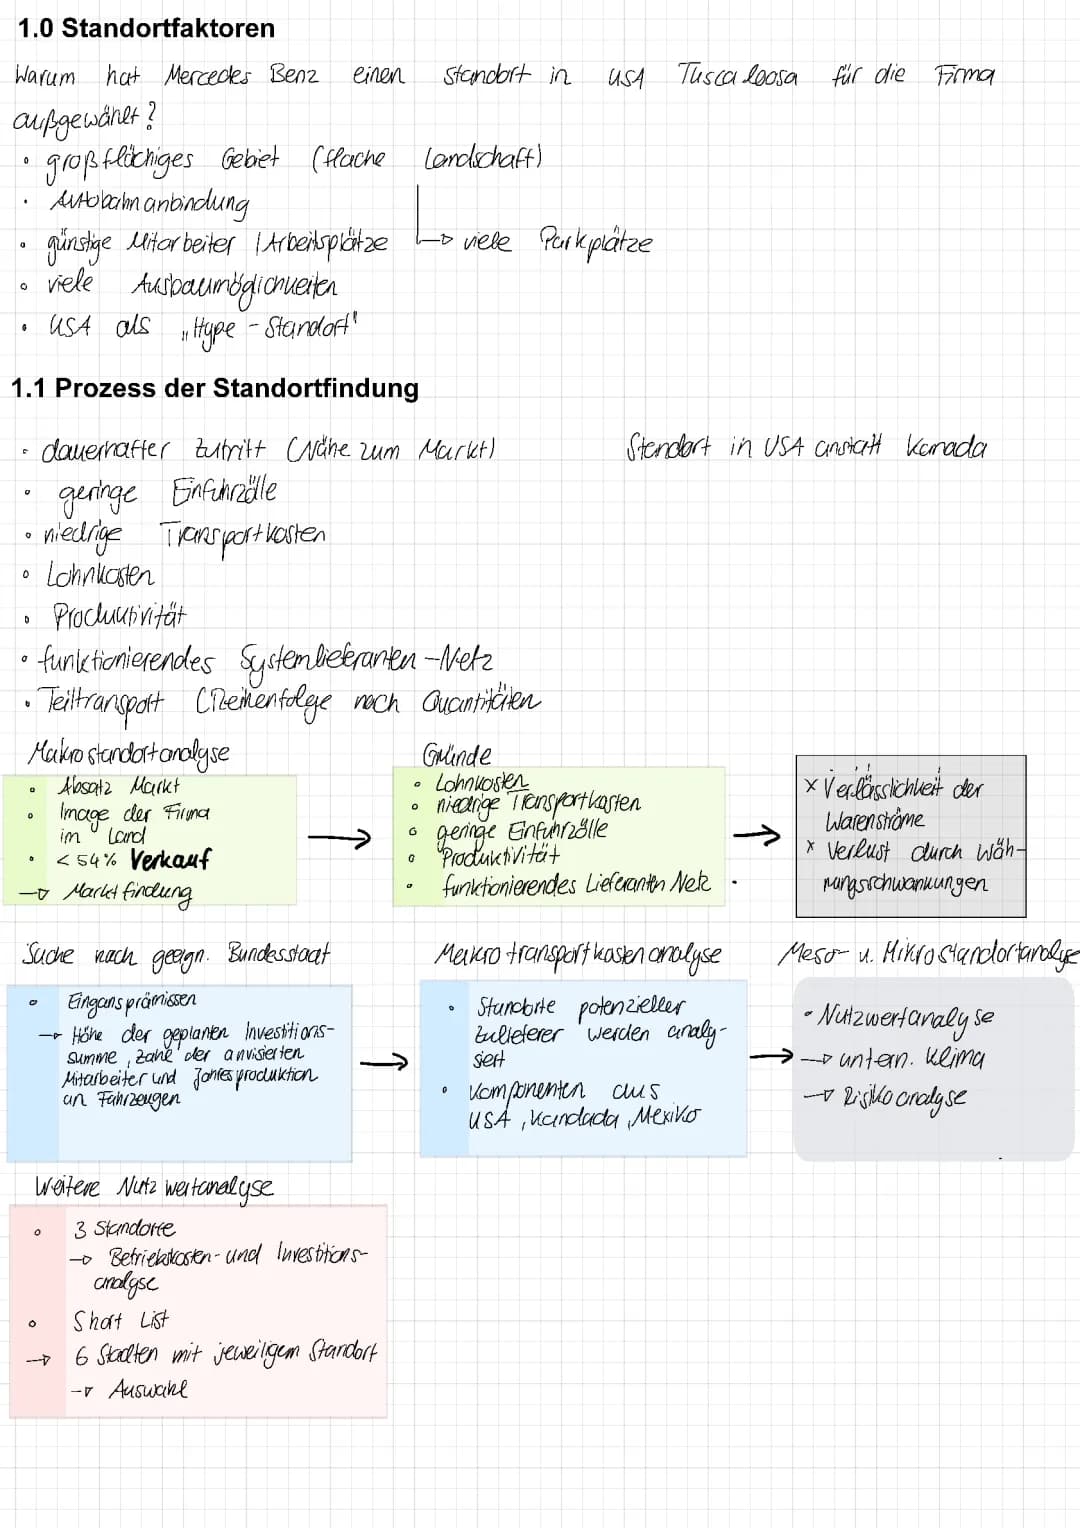 1.0 Standortfaktoren
Warum hat Mercedes Benz einen Standort in USA Tuscaloosa für die Firma
außgewählt?
• großflächiges Gebiet (flache Landschaft)
• Autobahnanbindung
• günstige Mitarbeiter / Arbeitsplätze → viele Parkplätze
• viele Ausbaumöglichkeiten
• USA als „Hype - Standort"
1.1 Prozess der Standortfindung
• dauerhafter Zutritt (Nähe zum Markt) Standort in USA anstatt Kanada
• geringe Einfuhrzölle
• niedrige Transportkosten
• Lohnkosten
• Produktivität
• funktionierendes Systemlieferanten-Netz
• Teiltransport (Reihenfolge nach Quantitäten
Makrostandortanalyse
• Absatz Markt
• Image der Firma
im Land
• < 54% Verkauf
→ Marktfindung
Gründe
• Lohnkosten
• niedrige Transportkosten
• geringe Einfuhrzölle
• Produktivität
• funktionierendes Lieferanten Netz
x Verlässlichkeit der
Warenströme
x Verlust durch Wäh-
rungsschwankungen
Suche nach geeign. Bundesstaat
• Eingansprämissen
→ Höhe der geplanten Investitions-
summe, Zahl der anvisierten
Mitarbeiter und Jahresproduktion
an Fahrzeugen
Makrotransportkostenanalyse
• Standorte potenzieller
Zulieferer werden analy-
siert
• Komponenten aus
USA, Kandada, Mexiko
Meso- u. Mikrostandortanalyse
• Nutzwertanalyse
→ untern. Klima
→ Risikoanalyse
Weitere Nutzwertanalyse
• 3 Standorte
→ Betriebskosten- und Investitions-
analyse
• Short List
→ 6 Städten mit jeweiligem Standort
→ Auswahl